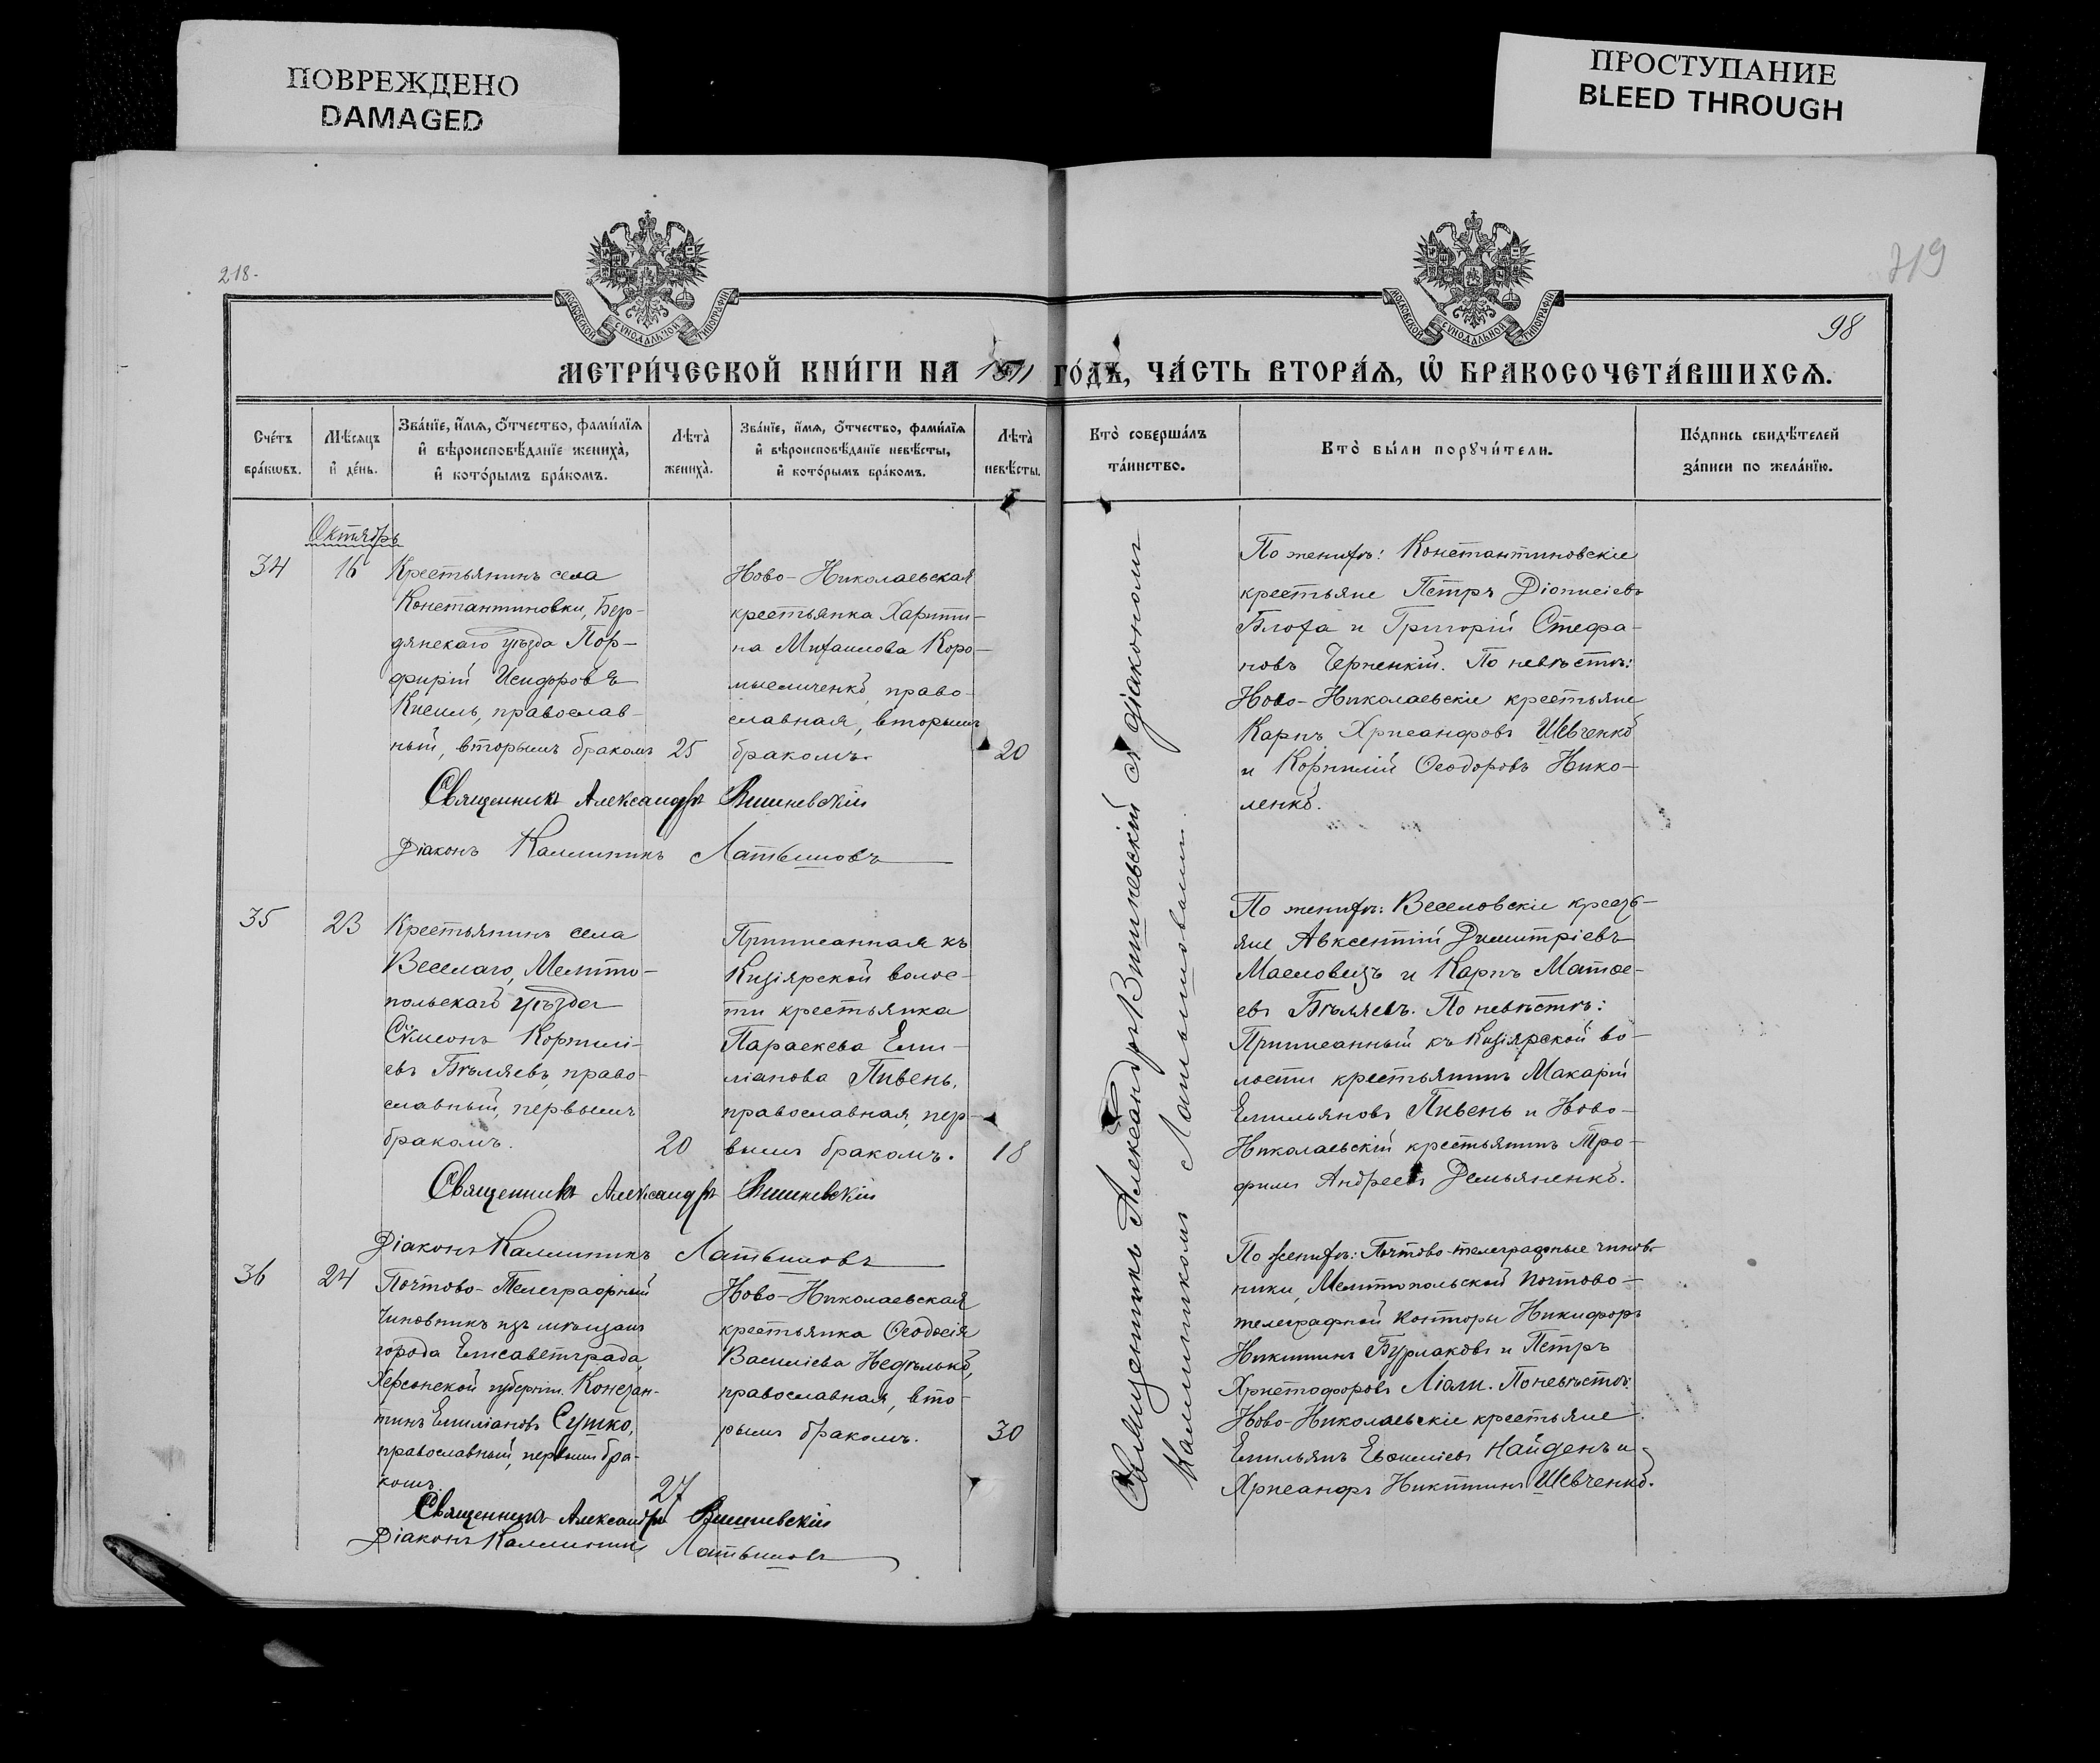 ПОВРЕЖДЕНО
DAMAGED
ПРОСТУПАНИЕ
BLEED THROUGH
218.
719
98
МОСКОВСКОЙ СѴНОДАЛЬНОЙ ТИПОГРАФІИ
МОСКОВСКОЙ СѴНОДАЛЬНОЙ ТИПОГРАФІИ
МЕТРИ́ЧЕСКОЙ КНИ́ГИ НА 1911 ГО́ДЪ, ЧА́СТЬ ВТОРА́Ѧ, Ѽ БРАКОСОЧЕТА́ВШИХСѦ.
Сче́тъ
бра́кѡвъ.
Мѣ́сяцъ
и҆ де́нь.
Зва́нїе, и҆́мя, ѻ҆́тчество, фами́лїя
и҆ вѣроисповѣ́данїе жениха̀,
и҆ кото́рымъ бра́комъ.
Лѣта̀
жениха̀.
Зва́нїе, и҆́мя, ѻ҆́тчество, фами́лїя
и҆ вѣроисповѣ́данїе невѣ́сты,
и҆ кото́рымъ бра́комъ.
Лѣта̀
невѣ́сты.
Кто̀ соверша́лъ
та́инство.
Кто̀ бы́ли порꙋчи́тели.
По́дпись свидѣ́телей
за́писи по жела́нїю.
Октябрь
34
16
Крестьянинъ села
Константиновки, Бер-
дянскаго уѣзда Пор-
фирій Исидоровъ
Кисиль, православ-
ный, вторымъ бракомъ
25
Ново-Николаевская
крестьянка Харити-
на Михаилова Коро-
мысличенко, право-
славная, вторымъ
бракомъ.
20
Священникъ Александръ Вишневскій
Діаконъ Каллиникъ Латышовъ
По женихѣ: Константиновскіе
крестьяне Петръ Діонисіевъ
Блоха и Григорій Стефа-
новъ Черненкій. По невѣстѣ:
Ново-Николаевскіе крестьяне
Карпъ Хрисанфовъ Шевченко
и Корнилій Ѳеодоровъ Нико-
ленко.
35
23
Крестьянинъ села
Веселаго, Мелито-
польскаго уѣзда
Сѷмеонъ Корнилі-
евъ Бѣляевъ, право-
славный, первымъ
бракомъ.
20
Приписанная къ
Кизіярской волос-
ти крестьянка
Параскева Еми-
ліанова Пивень,
православная, пер-
вымъ бракомъ.
18
Священникъ Александръ Вишневскій
Діаконъ Каллиникъ Латышовъ
По женихѣ: Веселовскіе кресть-
яне Авксентій Димитріевъ
Масловецъ и Карпъ Матѳе-
евъ Бѣляевъ. По невѣстѣ:
Приписанный къ Кизіярской во-
лости крестьянинъ Макарій
Емильяновъ Пивень и Ново-
Николаевскій крестьянинъ Тро-
фимъ Андреевъ Демьяненко.
36
24
Почтово-Телеграфный
Чиновникъ изъ мѣщанъ
города Елисаветграда,
Херсонской губерніи. Констан-
тинъ Емиліановъ Сушко,
православный, первымъ бра-
комъ.
27
Ново-Николаевская
крестьянка Ѳеодосія
Василіева Недѣлько,
православная, вто-
рымъ бракомъ.
30
Священникъ Александръ Вишневскій
Діаконъ Каллиникъ Латышовъ
По женихѣ: Почтово-телеграфные чинов-
ники, Мелитопольской Почтово-
телеграфной конторы Никифоръ
Никитинъ Бурлаковъ и Петръ
Христофоровъ Ліали. По невѣстѣ:
Ново-Николаевскіе крестьяне
Емильянъ Евѳиміевъ Найденъ и
Хрисанфъ Никитинъ Шевченко.
Священникъ Александръ Вишневскій съ діакономъ
Каллиникомъ Латышовымъ.